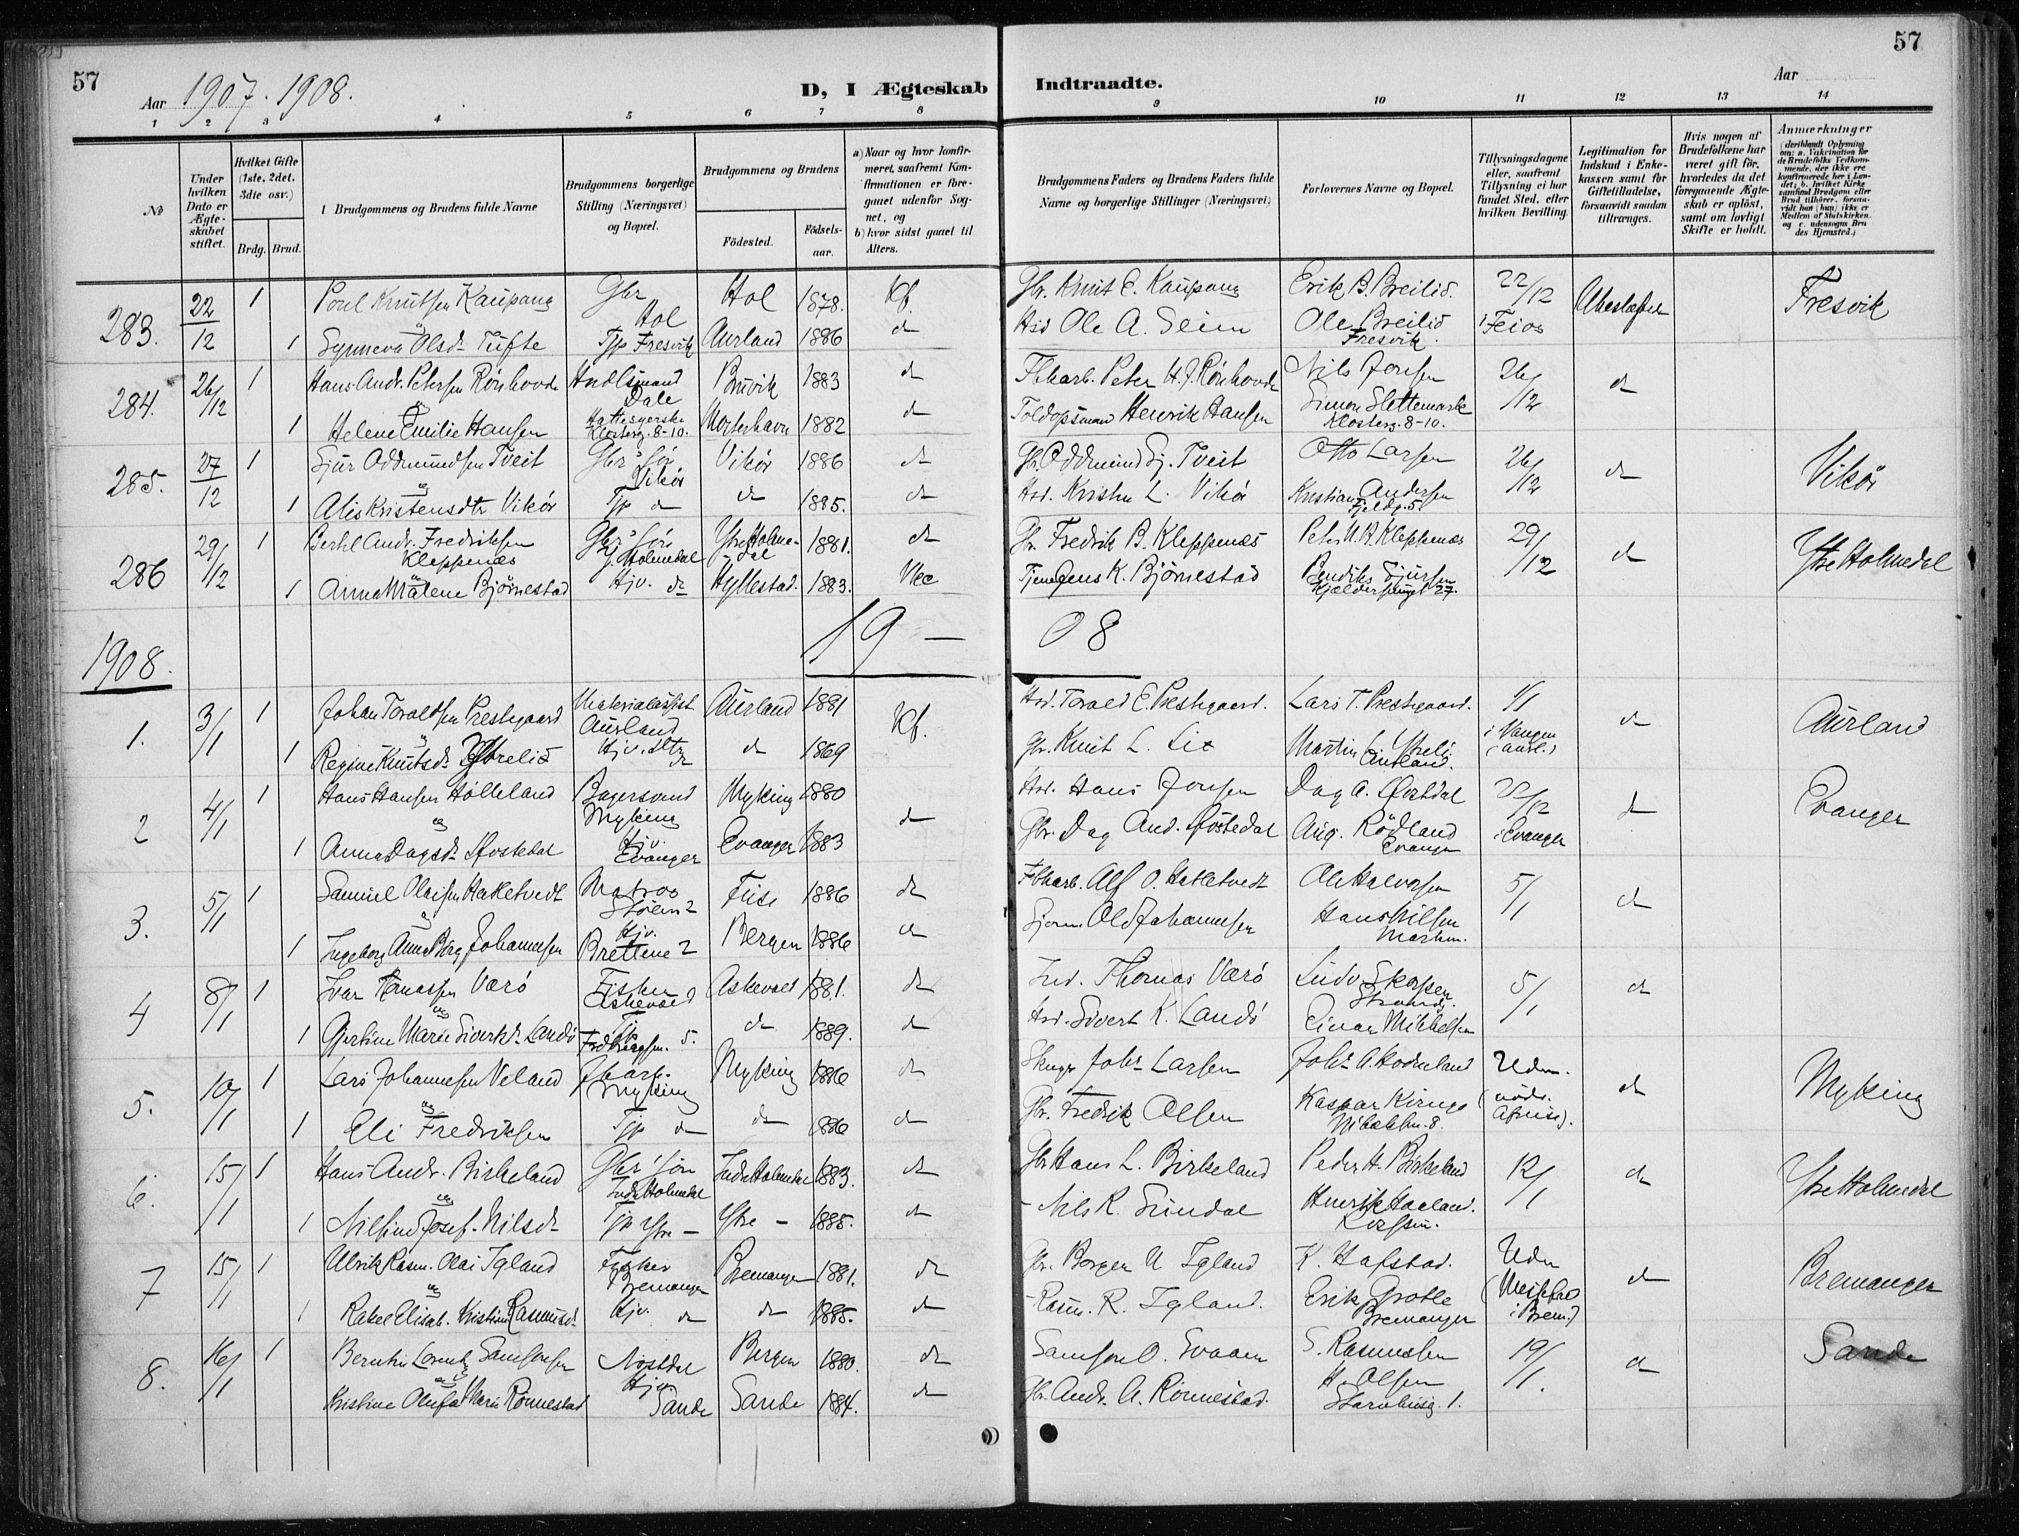 57
Aar 1907. 1908.
D, I Ægteskab
Indtraadte.
Aar
57
1 2 3 4 5 6 7 8 9 10 11 12 13 14
No
Under hvilken Dato er Ægteskabet stiftet.
Hvilket Gifte (1ste, 2det, 3die osv.)
Brdg. Brud.
Brudgommens og Brudens fulde Navne
Brudgommens borgerlige Stilling (Næringsvei) og Bopæl.
Brudgommens og Brudens
Födested.
Födsels-aar.
a) Naar og hvor konfirmeret, saafremt Konfirmationen er foregaaet udenfor Sognet, og
b) hvor sidst gaaet til Alters.
Brudgommens Faders og Brudens Faders fulde Navne og borgerlige Stillinger (Næringsvei)
Forlovernes Navne og Bopæl.
Tillysningsdagene eller, saafremt Tillysning ei har fundet Sted, efter hvilken Bevilling.
Legitimation for Indskud i Enkekassen samt for Giftetilladelse, forsaavidt saadan tiltrænges.
Hvis nogen af Brudefolkene har været gift før, hvorledes da det foregaaende Ægteskab er oplöst, samt om lovligt Skifte er holdt.
Anmærkninger
283. 22/12 1 Poul Knutsen Kaupang Gbr Hol Hol 1878. Kf. Gbr. Knut E. Kaupang Erik B. Breilid. 22/12 Fresvik
og
1 Synneva Olsdr Tufte Tjp Fresvik Aurland 1886 do Hsd Ole A. Seim Ole Breilid Fresvik. i Feios
284. 26/12 1 Hans Andr. Petersen Rönhovde Dale Bruvik 1883 do Fbharb. Peter H. J. Rönhovde Nils Jonsen 26/12 do
og
1 Helene Emilie Hansen Klosterg. 8-10. 1882 do Henrik Hansen Simon Slettemark Klosterg. 8-10.
285. 27/12 1 Sjur Oddmundsen Tveit Gbr's Sön Vikör Vikör 1886 do Gb. Oddmund Sj. Tveit Otto Larsen 26/12 do Vikör
og
1 Alis Kristensdtr Vikör Tjp do do 1885. do Hsd. Kristen L. Vikör Kristian Andersen
286 29/12 1 Bertil Andr. Fredriksen Kleppenæs Gbr's Sön Y. Holmedal Ytre Holmedal 1881. do Gb. Fredrik B. Kleppenæs Peter M. B. Kleppenæs 29/12 do Ytre Holmedal
og
1 Anna Malene Björnestad Hjv. do Hyllestad. 1883. Jens K. Björnestad Bendiks Sjursen 27.
19 - 08
1908.
1. 3/1 1 Johan Toraldsen Prestegaard Materialassist. Aurland Aurland 1881 Kf. Hsd. Torald E. Prestegaard. Lars T. Prestegaard. 1/1 do Aurland
og
1 Regine Knutsdr Ytrelid Hjv. do do 1869 Gbr. Knut L. Lie Martin L. Ytreli. Aurland. i Vangen (Aurl.)
2 4/1 1 Hans Hansen Hölleland Bagersvend Myking Myking 1880 do Hsd. Hans Jonsen Dag A. Övstdal 22/12 do Evanger
og
1 Anna Dagsdr Övstedal Hjv. Evanger Evanger 1883 Gbr. Dag And. Övstedal Aug. Rödland Evanger i Evanger
3. 5/1 1 Samuel Olaisen Hatletvedt Matros Stölen 2 Fuse 1886 do Fbharb. Alf O. Hatletvedt Ole Halvorsen 5/1 do
og
1 Ingeborg Anna Berg Johannesen Hjv. Brettene 2 Bergen 1886 do Sjöm. Johannesen Hans Nilsen
4 8/1 1 Ivar Tomassen Værö Fisker Askevold Askevold 1881. do Ind. Thomas Værö Ludv. 5/1 do
og
1 Gjertine Marie Siverts Landö 5. do 1889. do Hsd. Sivert K. Landö Einar Mikkelsen
5. 10/1 1 Lars Johannesen Veland Myking Myking 1886 do Johs Larsen Johs A. Hodneland Uden do Myking
og
1 Eli Fredriksen Tjp do do 1886 do Gbr. Fredrik Olsen Kaspar 8.
6. 15/1 1 Hans Andr. Birkeland Gbr's Sön Indre Holmedal Indre Holmedal 1883. do Gbr Hans L. Birkeland Peder H. Birkeland 12/1 do Ytre Holmedal
og
1 Nilsine Josef. Nilsdr Tjp Ytre - Ytre - 1885. do - Nils R. Sundal Henrik Haaland.
7 15/1 1 Ulrik Rasm. Olai Igland Fisker Bremanger Bremanger 1881. do Gbr. Borger U Igland K. Hafstad. Uden do Bremanger
og
1 Rakel Elisab. Kristine Rasmusdr Hjv. do do 1885. do - Rasm. R. Igland. Erik Grotle Bremanger i Brem.)
8. 16/1 1 Berntin Lorentz Samsonsen Nöstdal Bergen 1880. do Samson O. Svaaen S. Rasmussen 19/1. do Sande
og
Kristine Olufa Marie Rönnestad Hjv. Sande Sande 1884. do Gbr. Andr. A. Rönnestad. H. Olsen 1.